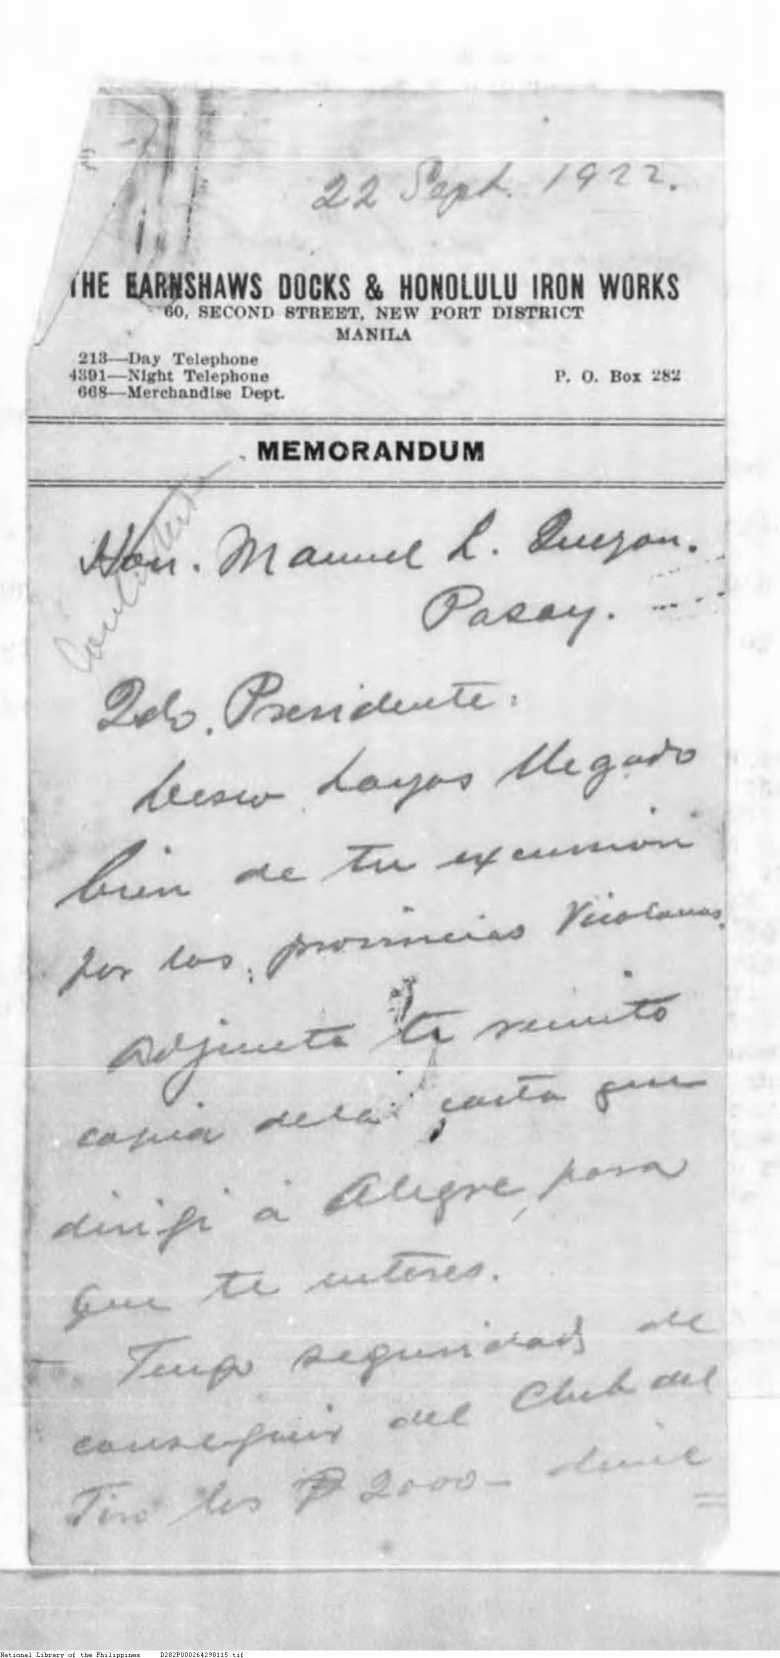 22 Sept. 1922.
THE EARNSHAWS DOCKS & HONOLULU IRON WORKS
60, SECOND STREET, NEW PORT DISTRICT
MANILA
213—Day Telephone
4391—Night Telephone
P. O. Box 282
668—Merchandise Dept.
MEMORANDUM
Hon. Manuel L. Quezon.
Pasay.
Qdo. Presidente:
Deseo hayas llegado
bien de tu excursion
por las provincias Vicolanas.
Adjunta te remito
copia dela carta que
dirigi á Alegre, para
que te enteres.
Tengo seguridad de
conseguir del Club del
Tiro los ₱ 2000-
National Library of the Philippines D282P000264290115.tif